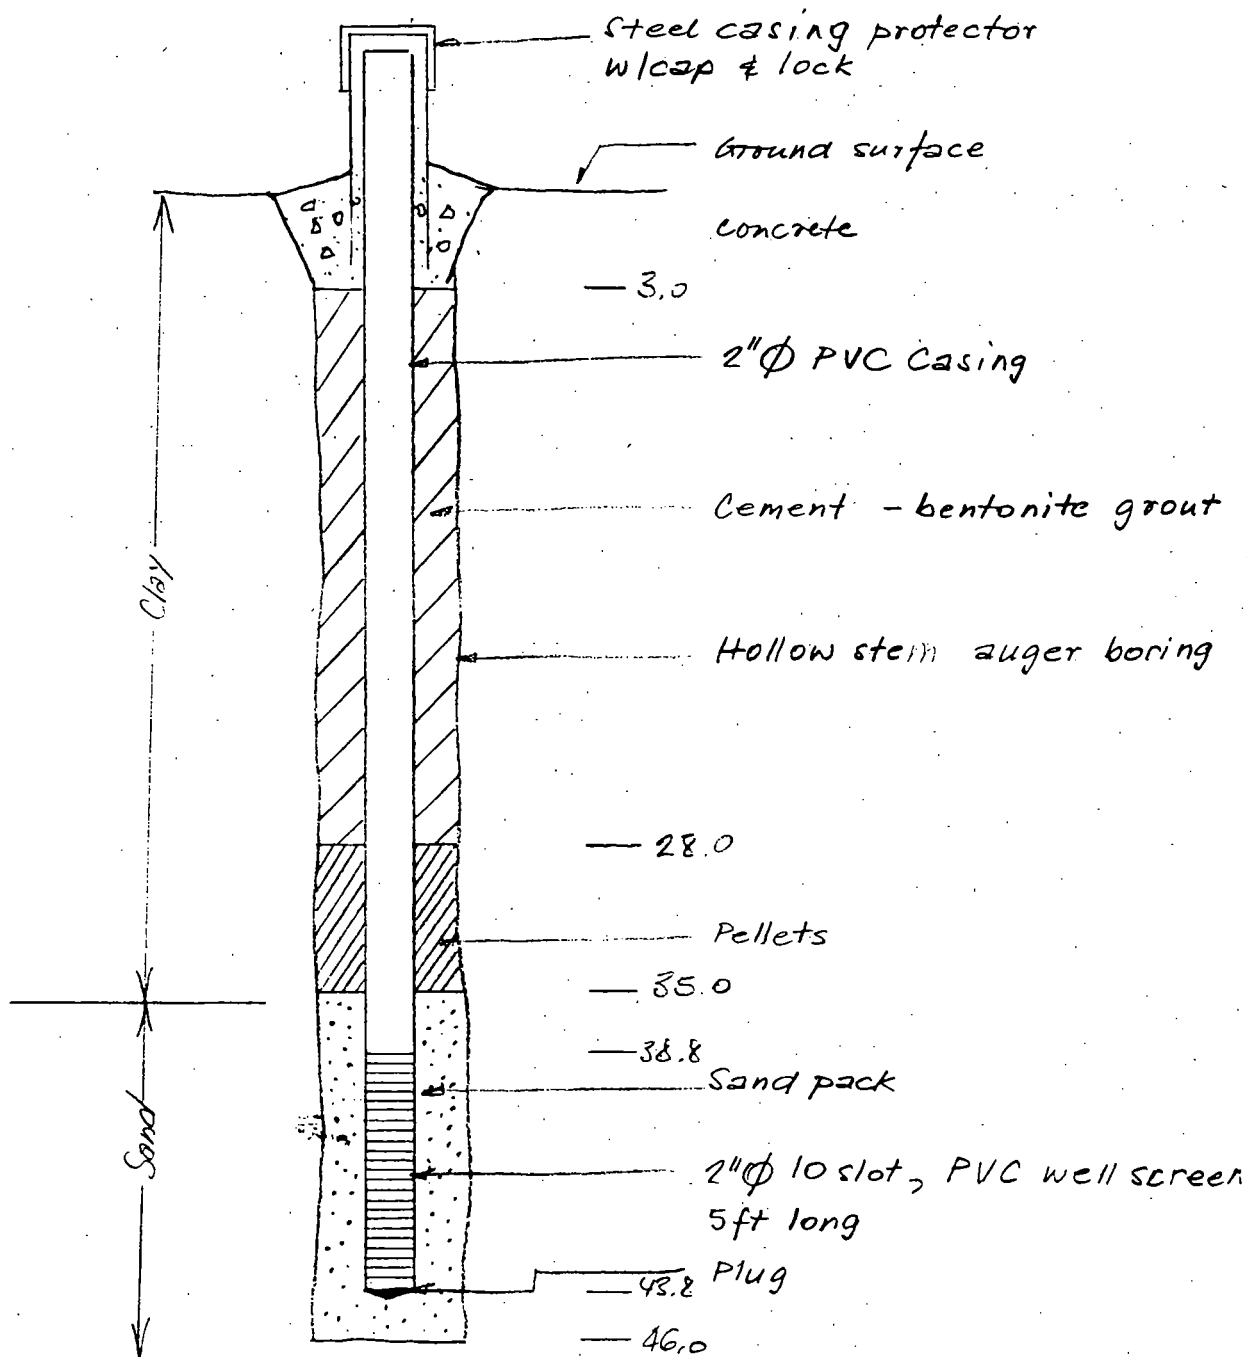 Steel casing protector
w/cap & lock
Ground surface
concrete
3.0
2"Ø PVC Casing
Cement - bentonite grout
Clay
Hollow stem auger boring
28.0
Pellets
35.0
38.8
Sand pack
Sand
2"Ø 10 slot, PVC well screen
5ft long
Plug
43.8
46.0